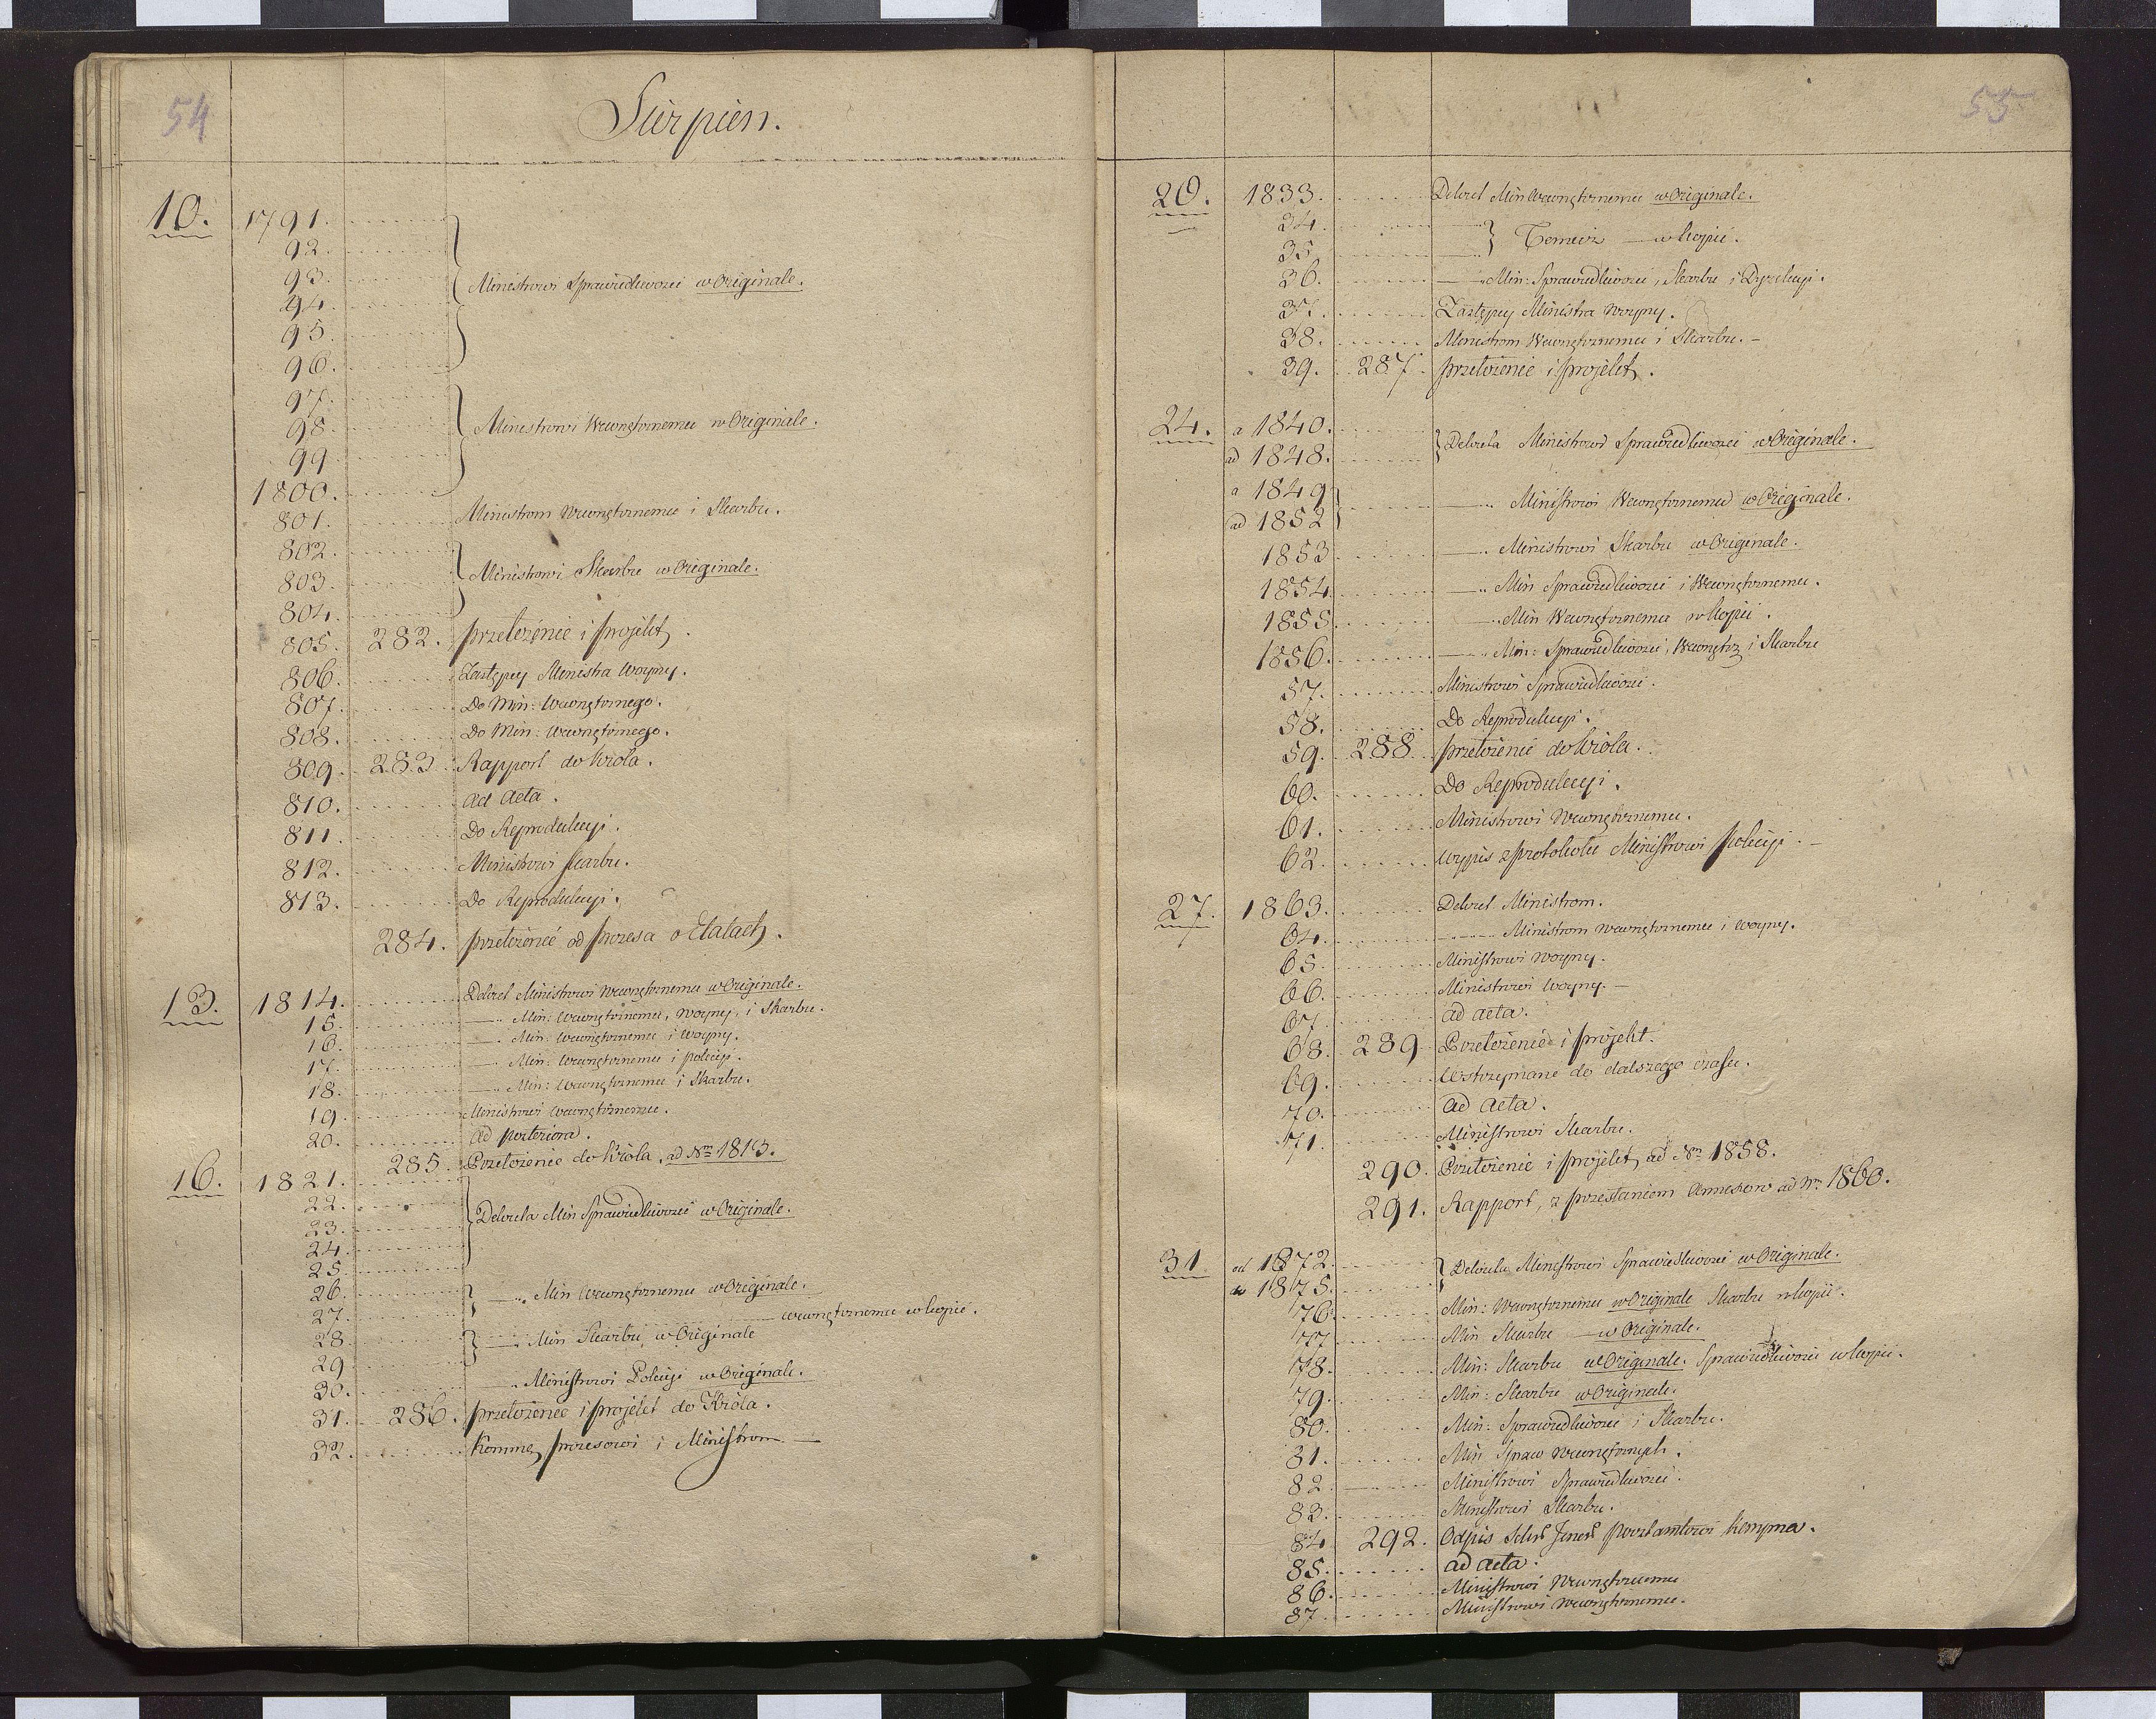 54
Sierpień.
10. 1791.
92.
93. Ministrowi Sprawiedliwości w Originale.
94.
95.
96.
97.
98. Ministrowi Wewnętrznemu w Originale.
99
1800.
801. Ministrom Wewnętrznemu i Skarbu.
802.
803. Ministrowi Skarbu w Originale.
804.
805. 282. przełożenie i projekt.
806. Zastępcy Ministra Woyny.
807. Do Min: Wewnętrznego.
808. Do Min: Wewnętrznego.
809. 283. Rapport do Króla.
810. ad Acta.
811. Do Reprodukcyi.
812. Ministrowi Skarbu.
813. Do Reprodukcyi.
284. przełożenie od prezesa o Etatach.
13. 1814. Dekret Ministrowi Wewnętrznemu w Originale.
15. — Min: Wewnętrznemu, Woyny, i Skarbu.
16. — Min: Wewnętrznemu i Woyny.
17. — Min: Wewnętrznemu i policyi.
18. — Min: Wewnętrznemu i Skarbu.
19. Ministrowi Wewnętrznemu.
20. ad posteriora.
285. Przełożenie do Króla, ad Nm 1813.
16. 1821.
22.
23. Dekreta Min Sprawiedliwości w Originale.
24.
25.
26. — Min Wewnętrznemu w Originale.
27. — wewnętrznemu w kopii.
28. — Min Skarbu w Originale
29.
30. — Ministrowi Policyi w Originale.
31. 286. przełożenie i projekt do Króla.
32. Komm prezesowi i Ministrom —
55
20. 1833. Dekret Min Wewnętrznemu w Originale.
34. Temuż — w kopii.
35
36. — Min: Sprawiedliwości, Skarbu i Dyrekcyi.
37. Zastępcy Ministra Woyny.
38. Ministrom Wewnętrznemu i Skarbu. —
39. 287. przełożenie i projekt.
24. a 1840. Dekreta Ministrowi Sprawiedliwości w Originale.
ad 1848.
a 1849 — Ministrowi Wewnętrznemu w Originale.
ad 1852
1853 — Ministrowi Skarbu w Originale.
1854 — Min Sprawiedliwości i Wewnętrznemu.
1855 — Min Wewnętrznemu w kopii.
1856. — Min: Sprawiedliwości, Wewnętrz i Skarbu
57. Ministrowi Sprawiedliwości.
58. Do Reprodukcyi.
59. 288. przełożenie do Króla.
60. Do Reprodukcyi.
61. Ministrowi Wewnętrznemu.
62. wypis z protokołu Ministrowi policyi. —
27. 1863. Dekret Ministrom.
64. — Ministrom Wewnętrznemu i Woyny.
65. Ministrowi Woyny.
66. Ministrowi Woyny. —
67. ad acta.
68. 289 Przełożenie i projekt.
69. Wstrzymane do dalszego czasu.
70. ad acta.
71. Ministrowi Skarbu.
290. Przełożenie i projekt, ad Nm 1858.
291. Rapport, z przesłaniem Annexow ad Nm 1860.
31 od 1872. Dekreta Ministrowi Sprawiedliwości w Originale.
do 1875.
76. Min: Wewnętrznemu w Originale Skarbu w kopii.
77 Min Skarbu — w Originale.
78. Min: Skarbu w Originale. Sprawiedliwości w kopii.
79. Min: Skarbu w Originale.
80. Min: Sprawiedliwości i Skarbu.
81. Min Spraw Wewnętrznych.
82 Ministrowi Sprawiedliwości.
83. Ministrowi Skarbu.
84 292. Odpis
85. ad acta.
86. Ministrowi Wewnętrznemu
87 Ministrowi Wewnętrznemu.